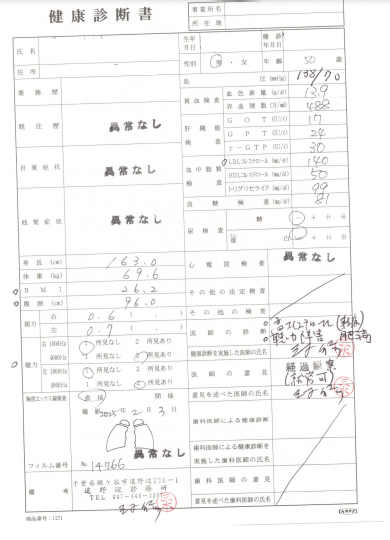 健康診断書
事業所名
所在地
氏名
生年月日
健診年月日
住所
性別 男・女 年齢 50歳
業務歴
血圧(mmHg) 138/70
貧血検査 血色素量(g/dl) 13.9
赤血球数(万/ml) 488
既往歴 異常なし
肝機能検査 GOT(IU/l) 17
GPT(IU/l) 24
γ-GTP(IU/l) 30
自覚症状 異常なし
血中脂質検査 LDLコレステロール(mg/dl) 140
HDLコレステロール(mg/dl) 50
トリグリセライド(mg/dl) 99
血糖検査(mg/dl) 81
他覚症状 異常なし
尿検査 糖 － + 卄 卅
蛋白 － + 卄 卅
心電図検査 異常なし
身長(cm) 163.0
体重(kg) 69.6
BMI 26.2
腹囲(cm) 96.0
その他の法定検査
その他の検査
視力 右 0.6 ( . )
左 0.7 ( . )
医師の診断
聴力障害 肥満
健康診断を実施した医師の氏名
聴力 右 1000Hz 1 所見なし 2 所見あり
4000Hz 1 所見なし 2 所見あり
左 1000Hz 1 所見なし 2 所見あり
4000Hz 1 所見なし 2 所見あり
医師の意見 経過観察
(就労可)
意見を述べた医師の氏名
胸部エックス線検査 直接 間接
撮影 2025年2月3日
異常なし
フィルム番号 No. 14766
歯科医師による健康診断
歯科医師による健康診断を実施した歯科医師の氏名
歯科医師の意見
意見を述べた歯科医師の氏名
備考
千葉県鎌ケ谷市道野辺256-1
道野辺診療所
商品番号:1271